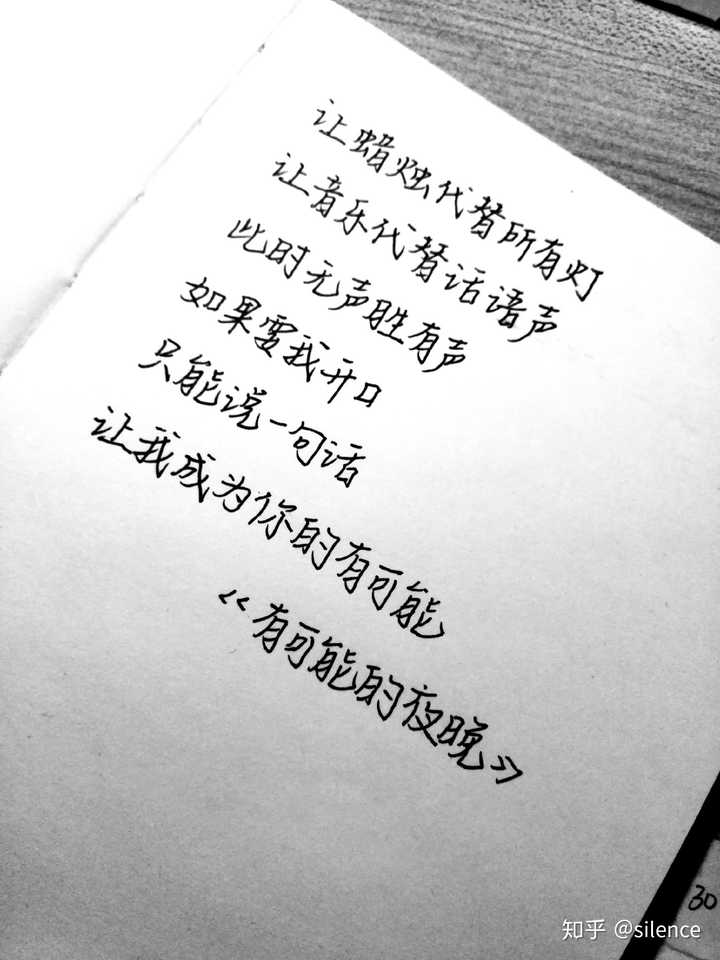 让蜡烛代替所有灯
让音乐代替话语声
此时无声胜有声
如果要我开口
只能说一句话
让我成为你的有可能
《有可能的夜晚》
30
知乎 @silence